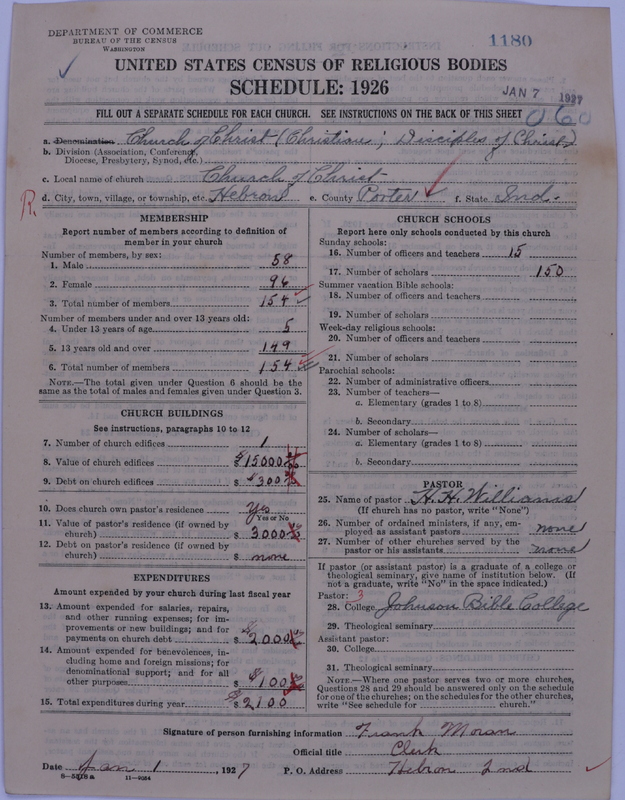 DEPARTMENT OF COMMERCE
BUREAU OF THE CENSUS
WASHINGTON
1180
UNITED STATES CENSUS OF RELIGIOUS BODIES
SCHEDULE: 1926
JAN 7 1927
FILL OUT A SEPARATE SCHEDULE FOR EACH CHURCH. SEE INSTRUCTIONS ON THE BACK OF THIS SHEET
060
a. Denomination Church of Christ (Christian; Disciples of Christ)
b. Division (Association, Conference, Diocese, Presbytery, Synod, etc.)
c. Local name of church Church of Christ
R. d. City, town, village, or township, etc. Hebron e. County Porter f. State Ind.
MEMBERSHIP
Report number of members according to definition of
member in your church
Number of members, by sex:
1. Male 58
2. Female 96
3. Total number of members 154
Number of members under and over 13 years old:
4. Under 13 years of age 5
5. 13 years old and over 149
6. Total number of members 154
NOTE.—The total given under Question 6 should be the
same as the total of males and females given under Question 3.
CHURCH BUILDINGS
See instructions, paragraphs 10 to 12
7. Number of church edifices 1
8. Value of church edifices $ 15000
9. Debt on church edifices $ 300
10. Does church own pastor's residence Yes
Yes or No
11. Value of pastor's residence (if owned by
church) $ 3000
12. Debt on pastor's residence (if owned by
church) $ none
EXPENDITURES
Amount expended by your church during last fiscal year
13. Amount expended for salaries, repairs,
and other running expenses; for im-
provements or new buildings; and for
payments on church debt $ 2000
14. Amount expended for benevolences, in-
cluding home and foreign missions; for
denominational support; and for all
other purposes $ 100
15. Total expenditures during year $ 2100
CHURCH SCHOOLS
Report here only schools conducted by this church
Sunday schools:
16. Number of officers and teachers 15
17. Number of scholars 150
Summer vacation Bible schools:
18. Number of officers and teachers
19. Number of scholars
Week-day religious schools:
20. Number of officers and teachers
21. Number of scholars
Parochial schools:
22. Number of administrative officers
23. Number of teachers—
a. Elementary (grades 1 to 8)
b. Secondary
24. Number of scholars—
a. Elementary (grades 1 to 8)
b. Secondary
PASTOR
25. Name of pastor H. H. Williams
(If church has no pastor, write "None")
26. Number of ordained ministers, if any, em-
ployed as assistant pastors none
27. Number of other churches served by the
pastor or his assistants none
If pastor (or assistant pastor) is a graduate of a college or
theological seminary, give name of institution below. (If
not a graduate, write "No" in the space indicated.)
Pastor: 3
28. College Johnson Bible College
29. Theological seminary
Assistant pastor:
30. College
31. Theological seminary
NOTE.—Where one pastor serves two or more churches,
Questions 28 and 29 should be answered only on the schedule
for one of the churches; on the schedules for the other churches,
write "See schedule for church."
Signature of person furnishing information Frank Moran
Official title Clerk
Date Jan 1, 1927 P. O. Address Hebron Ind
8-5319a 11-9064